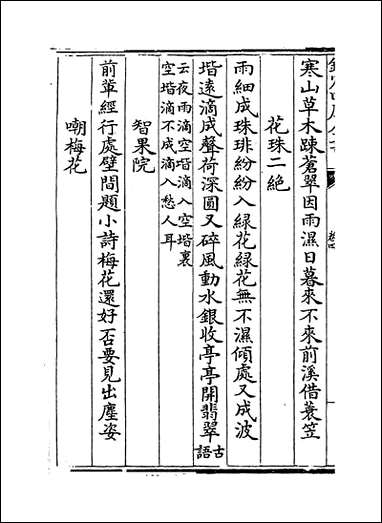 寒山草木踈蒼翠因雨濕日暮來不來前溪借蓑笠
花珠二絶
雨細成珠琲紛紛入緑花緑花無不濕傾處又成波
堦遠滴成聲荷深圓又碎風動水銀收亭亭開翡翠古語
云夜雨滴空堦滴入空堦裏
空堦滴不成滴入愁人耳
智果院
前軰經行處壁間題小詩梅花還好否要見出塵姿
嘲梅花